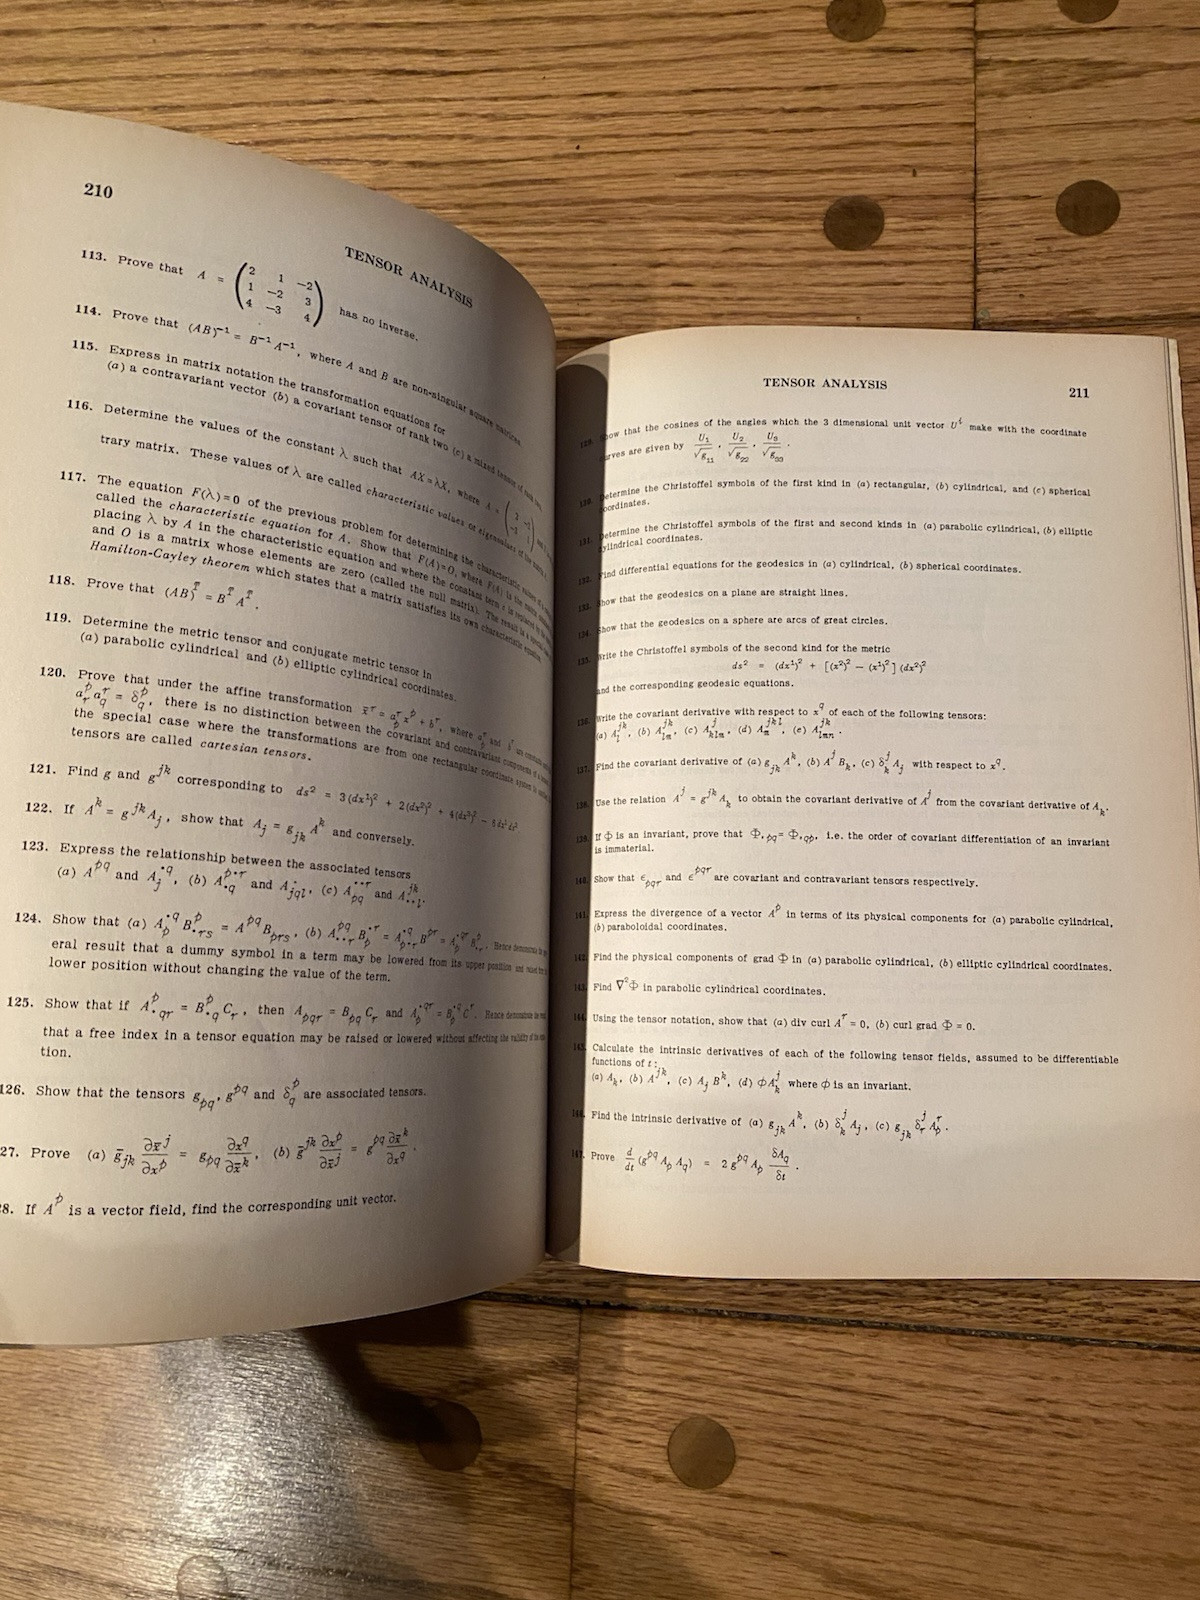 210
TENSOR ANALYSIS
113. Prove that A = ( 2 1 −2
1 −2 3
4 −3 4 ) has no inverse.
114. Prove that (AB)⁻¹ = B⁻¹ A⁻¹, where A and B are non-singular square matrices.
115. Express in matrix notation the transformation equations for
(a) a contravariant vector (b) a covariant tensor of rank two (c) a mixed tensor of rank two.
116. Determine the values of the constant λ such that AX = λX, where A =
trary matrix. These values of λ are called characteristic values or eigenvalues of the matrix
117. The equation F(λ)=0 of the previous problem for determining the characteristic values of
called the characteristic equation for A. Show that F(A)=0, where F(A) is the matrix
placing λ by A in the characteristic equation and where the constant term c is replaced by
and O is a matrix whose elements are zero (called the null matrix). The result is a special
Hamilton-Cayley theorem which states that a matrix satisfies its own characteristic equation.
118. Prove that (AB)ᵀ = Bᵀ Aᵀ.
119. Determine the metric tensor and conjugate metric tensor in
(a) parabolic cylindrical and (b) elliptic cylindrical coordinates.
120. Prove that under the affine transformation x̄^r = a_p^r x^p + b^r, where a_p^r and b^r are
a_r^p a_q^r = δ_q^p, there is no distinction between the covariant and contravariant components of a
the special case where the transformations are from one rectangular coordinate system to
tensors are called cartesian tensors.
121. Find g and g^{jk} corresponding to ds² = 3(dx¹)² + 2(dx²)² + 4(dx³)² −
122. If A^k = g^{jk} A_j, show that A_j = g_{jk} A^k and conversely.
123. Express the relationship between the associated tensors
(a) A^{pq} and A_j^{.q}, (b) A^{p.r}_{.q} and A_{jql}, (c) A_{pq}^{..r} and A^{jk}_{..l}.
124. Show that (a) A_p^{.q} B^p_{.rs} = A^{pq} B_{prs}, (b) A^{pq}_{..r} B_p^{.r} = A^{.q}_{p.r} B^{pr} = A_p^{.qr} B^p_{.r}. Hence demonstrate the
eral result that a dummy symbol in a term may be lowered from its upper position and raised from
lower position without changing the value of the term.
125. Show that if A^p_{.qr} = B^p_{.q} C_r, then A_{pqr} = B_{pq} C_r and A_p^{.qr} = B_p^{.q} C^r. Hence demonstrate the
that a free index in a tensor equation may be raised or lowered without affecting the validity of the
tion.
126. Show that the tensors g_{pq}, g^{pq} and δ_q^p are associated tensors.
27. Prove (a) ḡ_{jk} ∂x̄^j/∂x^p = g_{pq} ∂x^q/∂x̄^k, (b) ḡ^{jk} ∂x^p/∂x̄^j = g^{pq} ∂x̄^k/∂x^q.
8. If A^p is a vector field, find the corresponding unit vector.
TENSOR ANALYSIS
211
how that the cosines of the angles which the 3 dimensional unit vector U^i make with the coordinate
rves are given by U₁/√g₁₁, U₂/√g₂₂, U₃/√g₃₃.
etermine the Christoffel symbols of the first kind in (a) rectangular, (b) cylindrical, and (c) spherical
oordinates.
etermine the Christoffel symbols of the first and second kinds in (a) parabolic cylindrical, (b) elliptic
ylindrical coordinates.
132. Find differential equations for the geodesics in (a) cylindrical, (b) spherical coordinates.
133. Show that the geodesics on a plane are straight lines.
134. Show that the geodesics on a sphere are arcs of great circles.
135. Write the Christoffel symbols of the second kind for the metric
ds² = (dx¹)² + [(x²)² − (x¹)²] (dx²)²
and the corresponding geodesic equations.
136. Write the covariant derivative with respect to x^q of each of the following tensors:
(a) A_l^{jk}, (b) A_{lm}^{jk}, (c) A_{klm}^j, (d) A_m^{jkl}, (e) A_{lmn}^{jk}.
137. Find the covariant derivative of (a) g_{jk} A^k, (b) A^j B_k, (c) δ_k^j A_j with respect to x^q.
138. Use the relation A^j = g^{jk} A_k to obtain the covariant derivative of A^j from the covariant derivative of A_k.
139. If Φ is an invariant, prove that Φ,_{pq} = Φ,_{qp}, i.e. the order of covariant differentiation of an invariant
is immaterial.
140. Show that ε_{pqr} and ε^{pqr} are covariant and contravariant tensors respectively.
141. Express the divergence of a vector A^p in terms of its physical components for (a) parabolic cylindrical,
(b) paraboloidal coordinates.
142. Find the physical components of grad Φ in (a) parabolic cylindrical, (b) elliptic cylindrical coordinates.
143. Find ∇²Φ in parabolic cylindrical coordinates.
144. Using the tensor notation, show that (a) div curl A^r = 0, (b) curl grad Φ = 0.
145. Calculate the intrinsic derivatives of each of the following tensor fields, assumed to be differentiable
functions of t:
(a) A_k, (b) A^{jk}, (c) A_j B^k, (d) φA_k^j where φ is an invariant.
146. Find the intrinsic derivative of (a) g_{jk} A^k, (b) δ_k^j A_j, (c) g_{jk} δ_r^j A_p^r.
147. Prove d/dt (g^{pq} A_p A_q) = 2 g^{pq} A_p δA_q/δt.